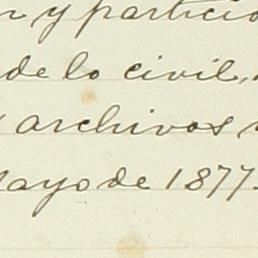 y particio
de lo civil,
archivos
Mayo de 1877